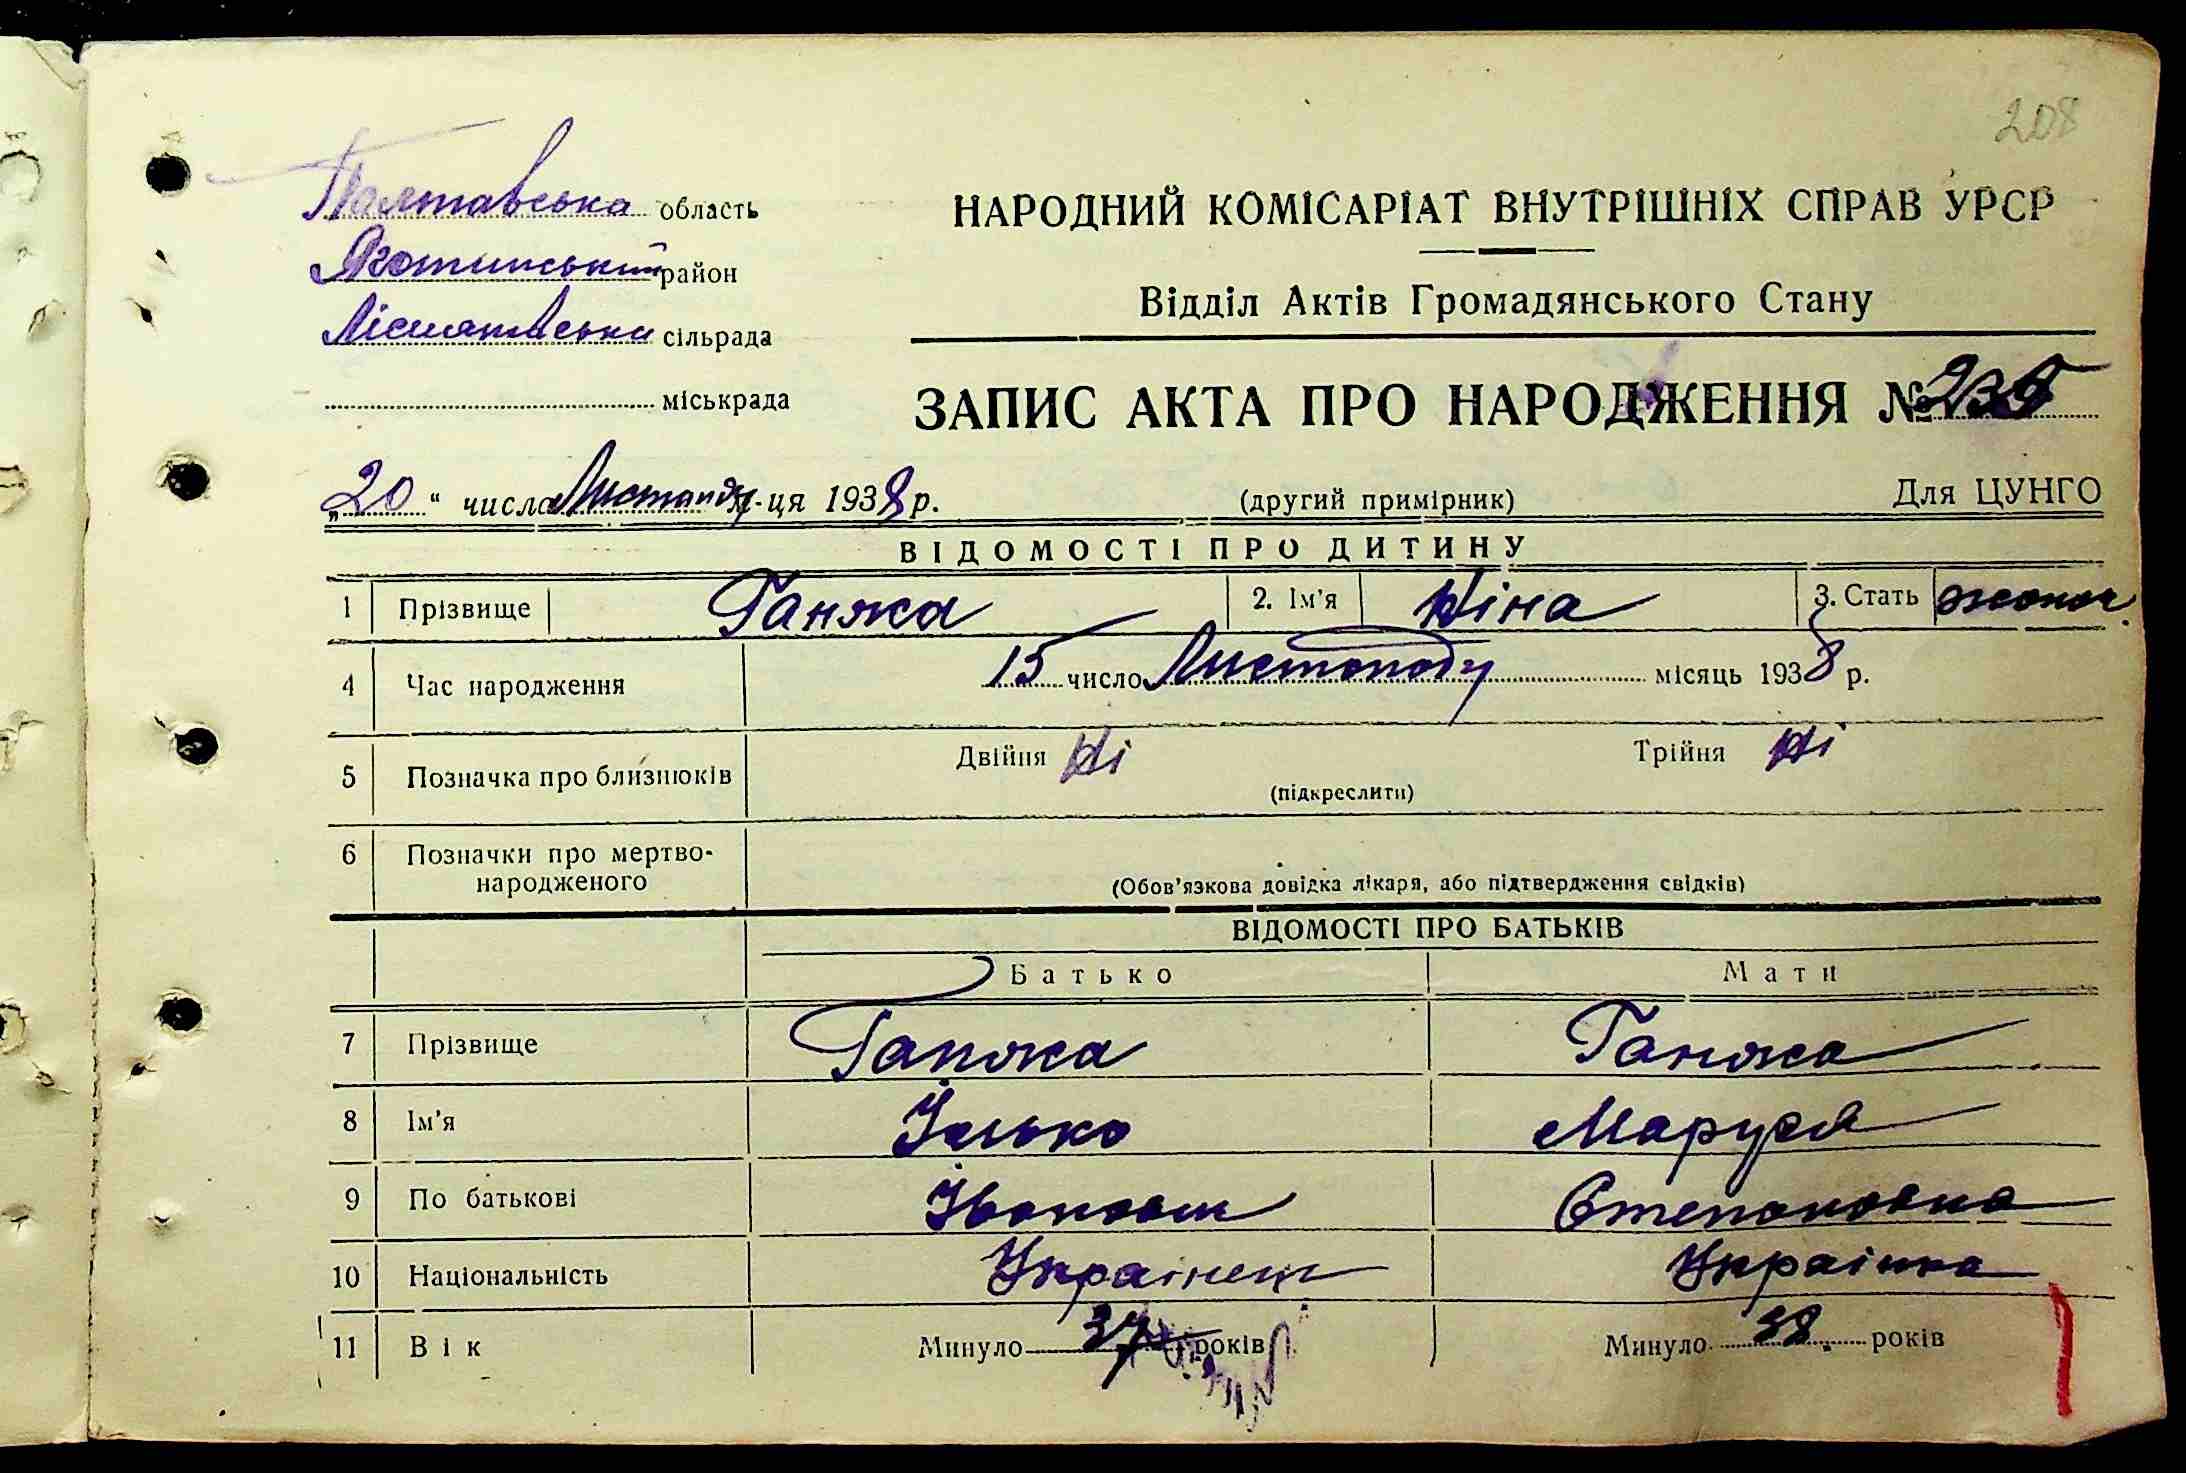 208
Полтавська область
Яготинський район
сільрада
міськрада
НАРОДНИЙ КОМІСАРІАТ ВНУТРІШНІХ СПРАВ УРСР
Відділ Актів Громадянського Стану
ЗАПИС АКТА ПРО НАРОДЖЕННЯ № 235
„20“ числа Листопаду м-ця 1938 р.
(другий примірник)
Для ЦУНГО
ВІДОМОСТІ ПРО ДИТИНУ
1 Прізвище Ганжа 2. Ім'я Ніна 3. Стать жіноч.
4 Час народження 15 число Листопаду місяць 1938 р.
5 Позначка про близнюків Двійня Ні Трійня Ні
(підкреслити)
6 Позначки про мертво-
народженого
(Обов'язкова довідка лікаря, або підтвердження свідків)
ВІДОМОСТІ ПРО БАТЬКІВ
Батько Мати
7 Прізвище Ганжа Ганжа
8 Ім'я Ілько Маруся
9 По батькові Іванович Степановна
10 Національність Українец Українка
11 Вік Минуло 37 років Минуло 38 років